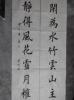 閒為水竹雲山主
靜得風花雪月權